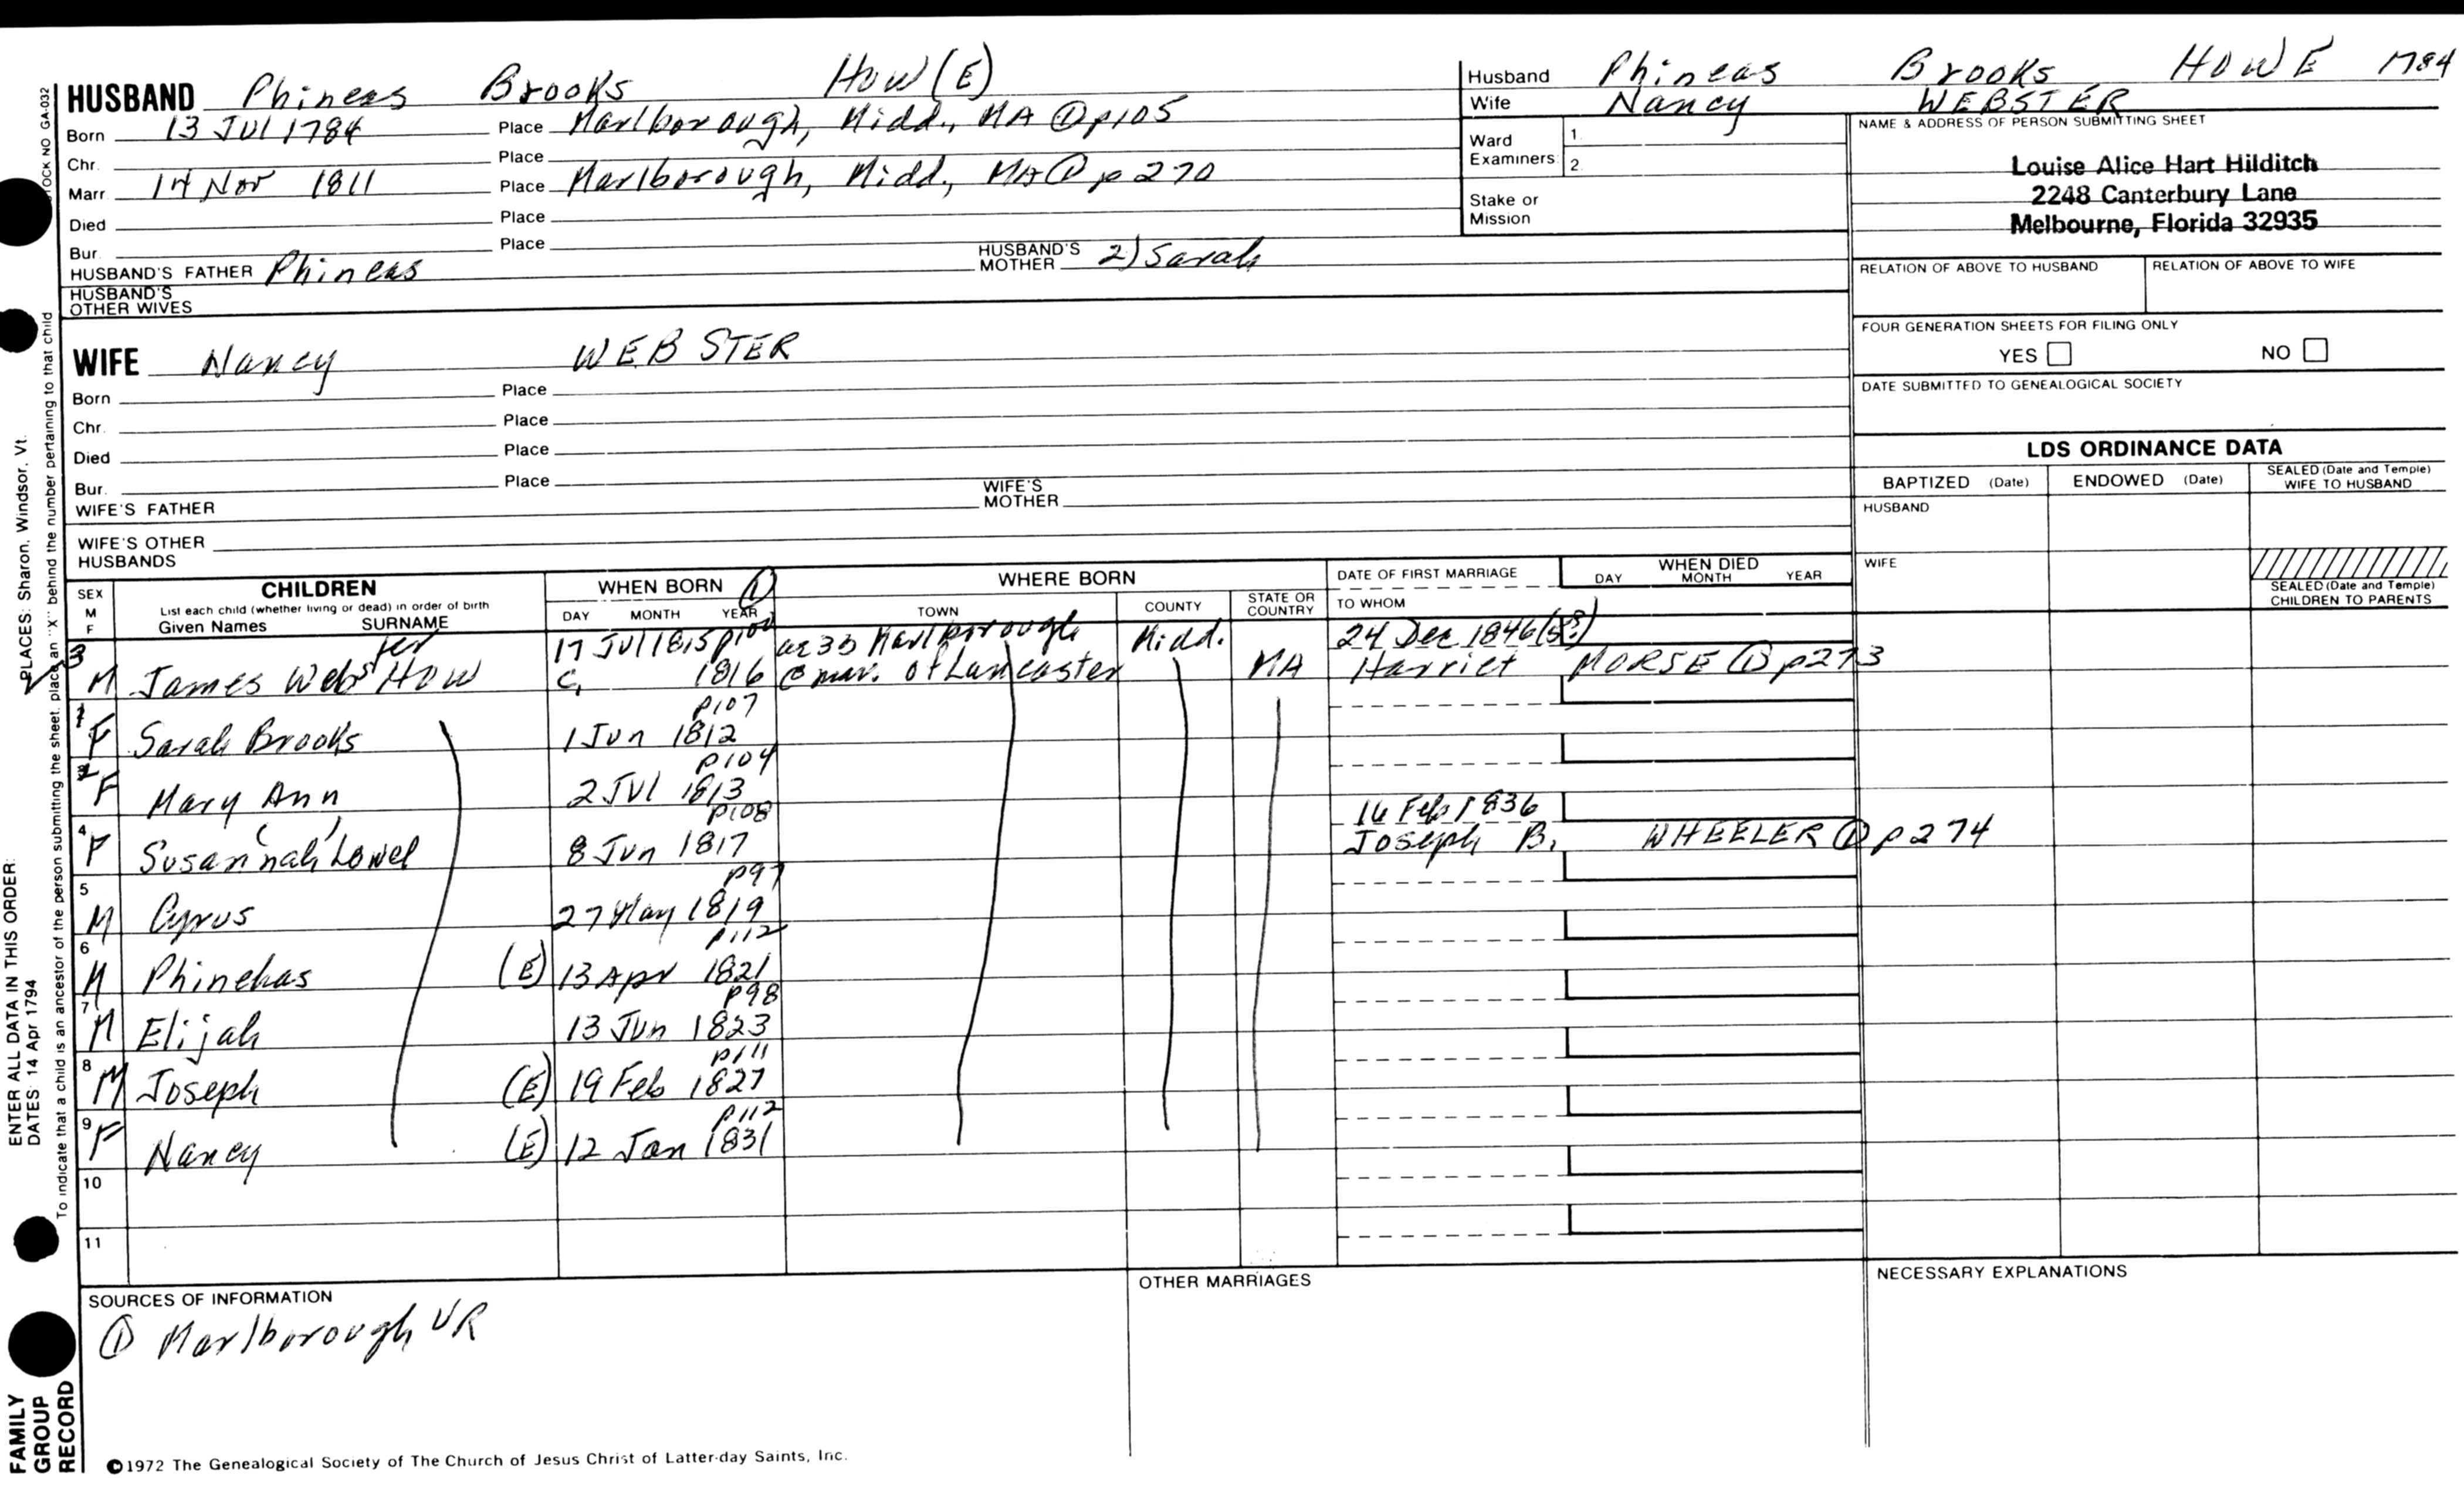 HUSBAND Phineas Brooks How(E)
Born 13 Jul 1784 Place Marlborough, Midd., MA ① p105
Chr. Place
Marr. 14 Nov 1811 Place Marlborough, Midd., MA ① p 270
Died Place
Bur. Place
HUSBAND'S FATHER Phineas HUSBAND'S MOTHER 2) Sarah
HUSBAND'S OTHER WIVES
WIFE Nancy WEBSTER
Born Place
Chr. Place
Died Place
Bur. Place
WIFE'S FATHER WIFE'S MOTHER
WIFE'S OTHER HUSBANDS
Husband Phineas Brooks HOWE 1784
Wife Nancy WEBSTER
Ward Examiners: 1. 2.
Stake or Mission
NAME & ADDRESS OF PERSON SUBMITTING SHEET
Louise Alice Hart Hilditch
2248 Canterbury Lane
Melbourne, Florida 32935
RELATION OF ABOVE TO HUSBAND RELATION OF ABOVE TO WIFE
FOUR GENERATION SHEETS FOR FILING ONLY
YES NO
DATE SUBMITTED TO GENEALOGICAL SOCIETY
LDS ORDINANCE DATA
BAPTIZED (Date) ENDOWED (Date) SEALED (Date and Temple) WIFE TO HUSBAND
HUSBAND
WIFE
SEALED (Date and Temple) CHILDREN TO PARENTS
SEX M F
CHILDREN
List each child (whether living or dead) in order of birth
Given Names SURNAME
WHEN BORN ①
DAY MONTH YEAR
WHERE BORN
TOWN COUNTY STATE OR COUNTRY
DATE OF FIRST MARRIAGE
TO WHOM
WHEN DIED
DAY MONTH YEAR
17 Jul 1815 p100 ae 30 Marlborough Midd. 24 Dec 1846
3 M James Webster How c. 1816 @ mar. of Lancaster MA Harriet MORSE ① p273
p107
1 F Sarah Brooks 1 Jun 1812
p104
2 F Mary Ann 2 Jul 1813
p108 16 Feb 1836
4 F Susan(nah) Lowel 8 Jun 1817 Joseph B. WHEELER ① p 274
p97
5 M Cyrus 27 May 1819
p112
6 M Phinehas (E) 13 Apr 1821
p98
7 M Elijah 13 Jun 1823
p111
8 M Joseph (E) 19 Feb 1827
p112
9 F Nancy (E) 12 Jan 1831
10
11
SOURCES OF INFORMATION
① Marlborough VR
OTHER MARRIAGES
NECESSARY EXPLANATIONS
©1972 The Genealogical Society of The Church of Jesus Christ of Latter-day Saints, Inc.
STOCK NO GA-032
To indicate that a child is an ancestor of the person submitting the sheet, place an "X" behind the number pertaining to that child
ENTER ALL DATA IN THIS ORDER:
DATES: 14 Apr 1794
PLACES: Sharon, Windsor, Vt.
FAMILY GROUP RECORD